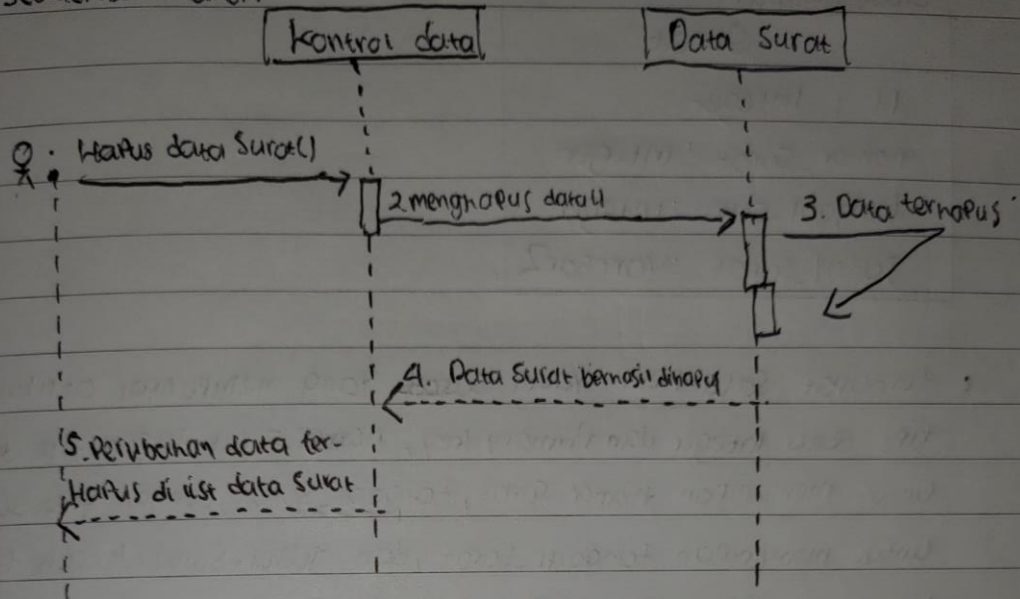 Kontrol data
Data Surat
Hapus data Surat()
2 menghapus data()
3. Data terhapus
4. Data Surat berhasil dihapu
5. Perubahan data ter-
Hapus di list data Surat